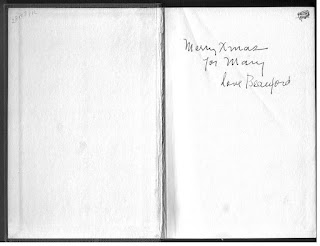 Merry Xmas
for Mary
Love Beauford